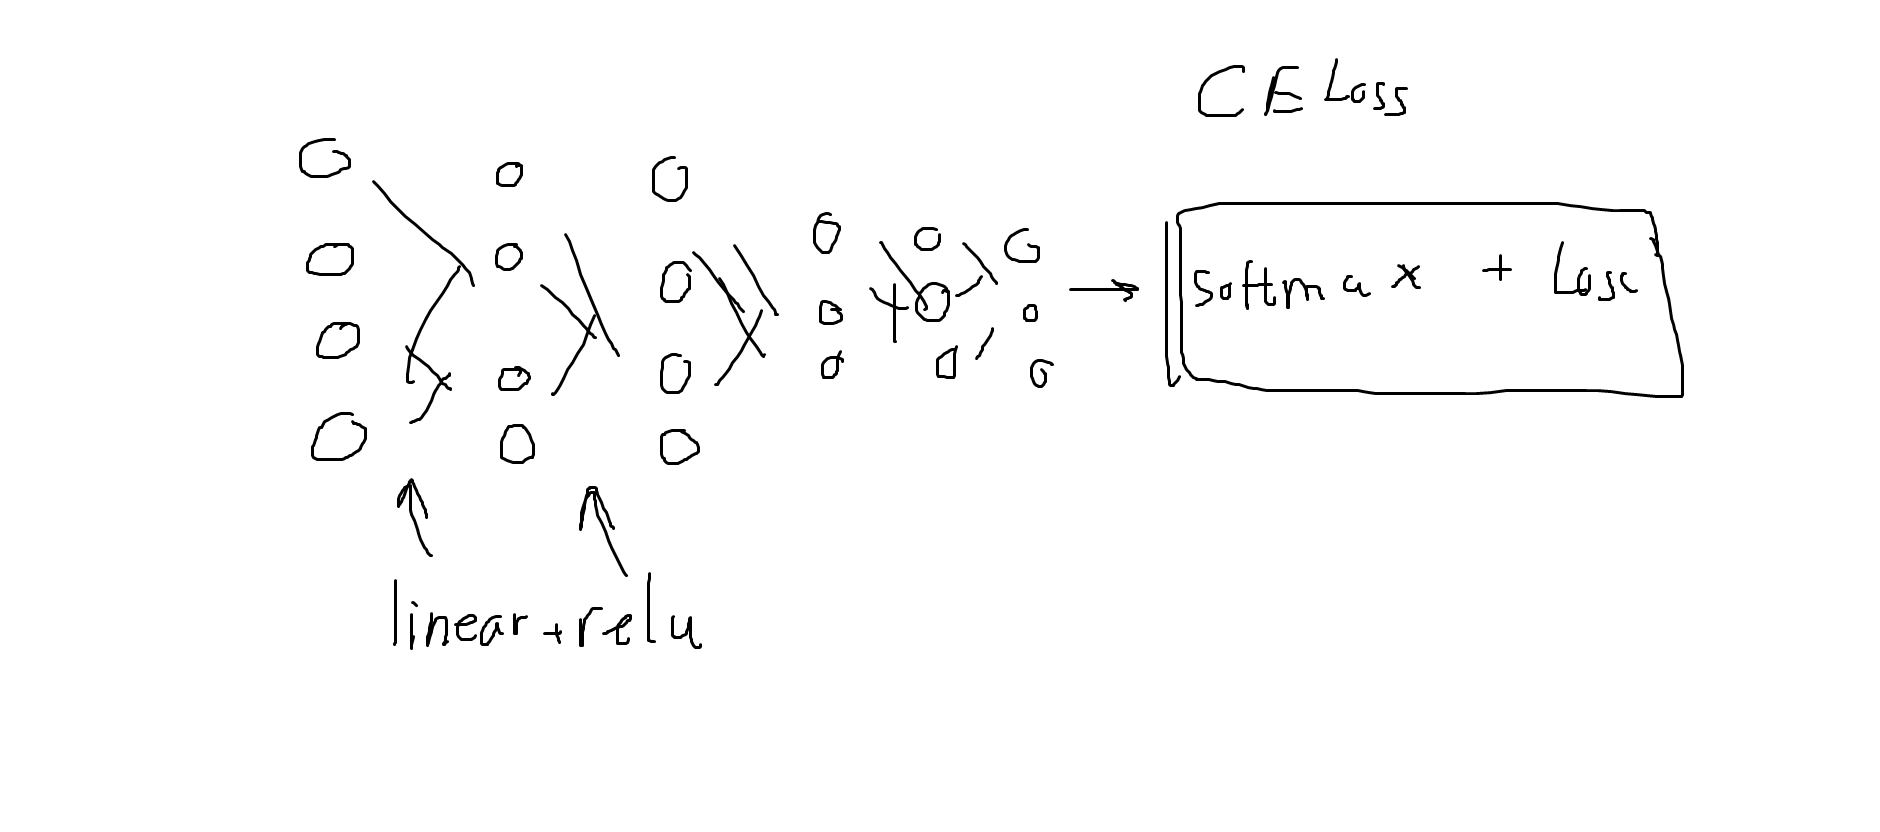 CE Loss
softmax + Loss
linear + relu